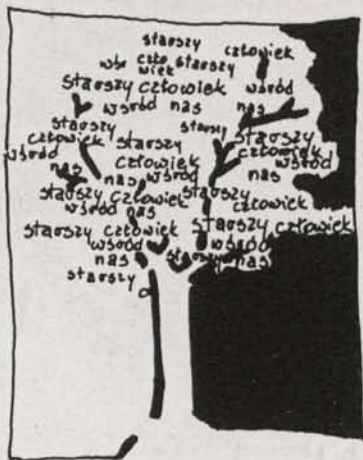 starszy człowiek
wśród człowiek starszy
starszy człowiek wśród
wśród nas nas
starszy starszy starszy
człowiek starszy człowiek
wśród człowiek wśród
nas nas wśród nas
starszy człowiek starszy
wśród nas człowiek
starszy człowiek starszy człowiek
wśród wśród
nas starszy nas
starszy